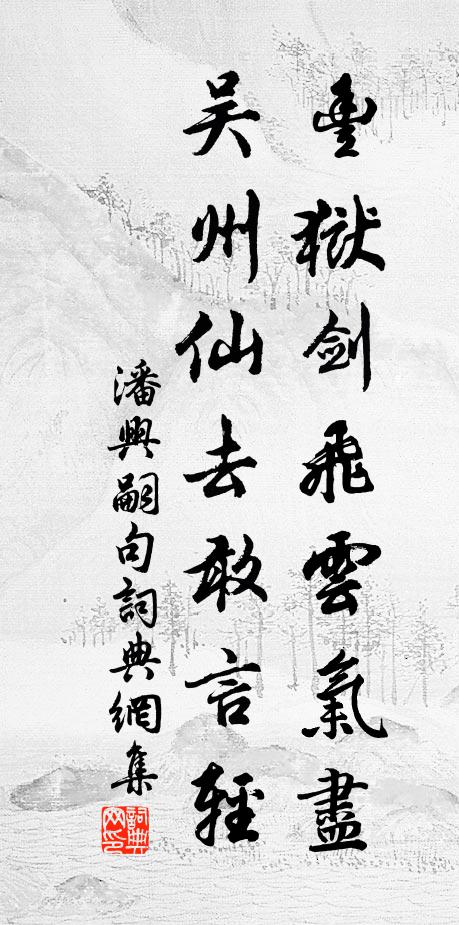 豊獄劍飛雲氣盡
吴州仙去敢言輕
潘興嗣句詞典網集
詞典網印